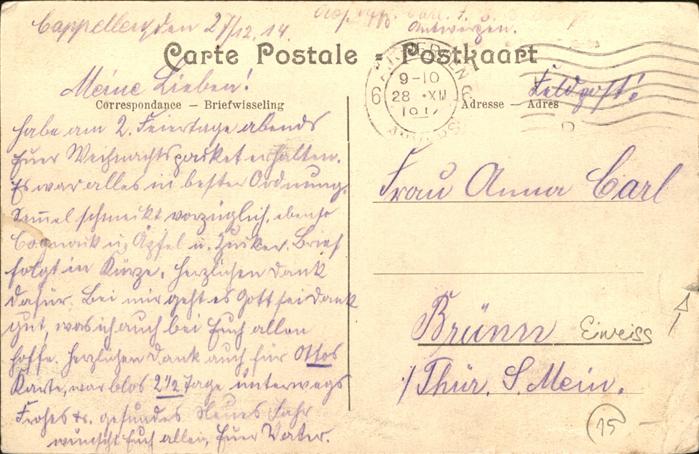 Cappellen, den 27/12. 14.
Antwerpen.
Carte Postale - Postkaart
Meine Lieben!
Correspondance — Briefwisseling
Adresse — Adres
Feldpost!
ANTWERPEN
9-10
6 28 XII 6
1914
habe am 2. Feiertage abends
Euer Weihnachtspacket erhalten.
Es war alles in bester Ordnung.
schmekt vorzüglich, ebenso
u. Äpfel u. Zucker. Brief
folgt in Kürze. Herzlichen Dank
dafür. Bei mir geht es Gott sei Dank
gut, was ich auch bei Euch allen
hoffe. Herzlichen Dank auch für Ottos
Karte, war blos 2 1/2 Tage unterwegs
Frohes u. gesundes Neues Jahr
wünscht Euch allen, Euer Vater.
Frau Anna Carl
Brünn Eiweiss
i/Thür. S. Mein.
15